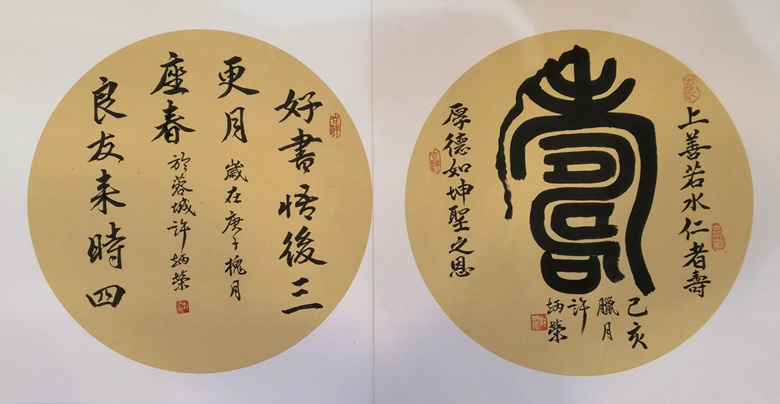 好書悟後三
更月
歲在庚子槐月
座春
於蓉城許炳榮
良友来時四
上善若水仁者壽
壽
厚德如坤聖之恩
己亥
臘月
許
炳榮